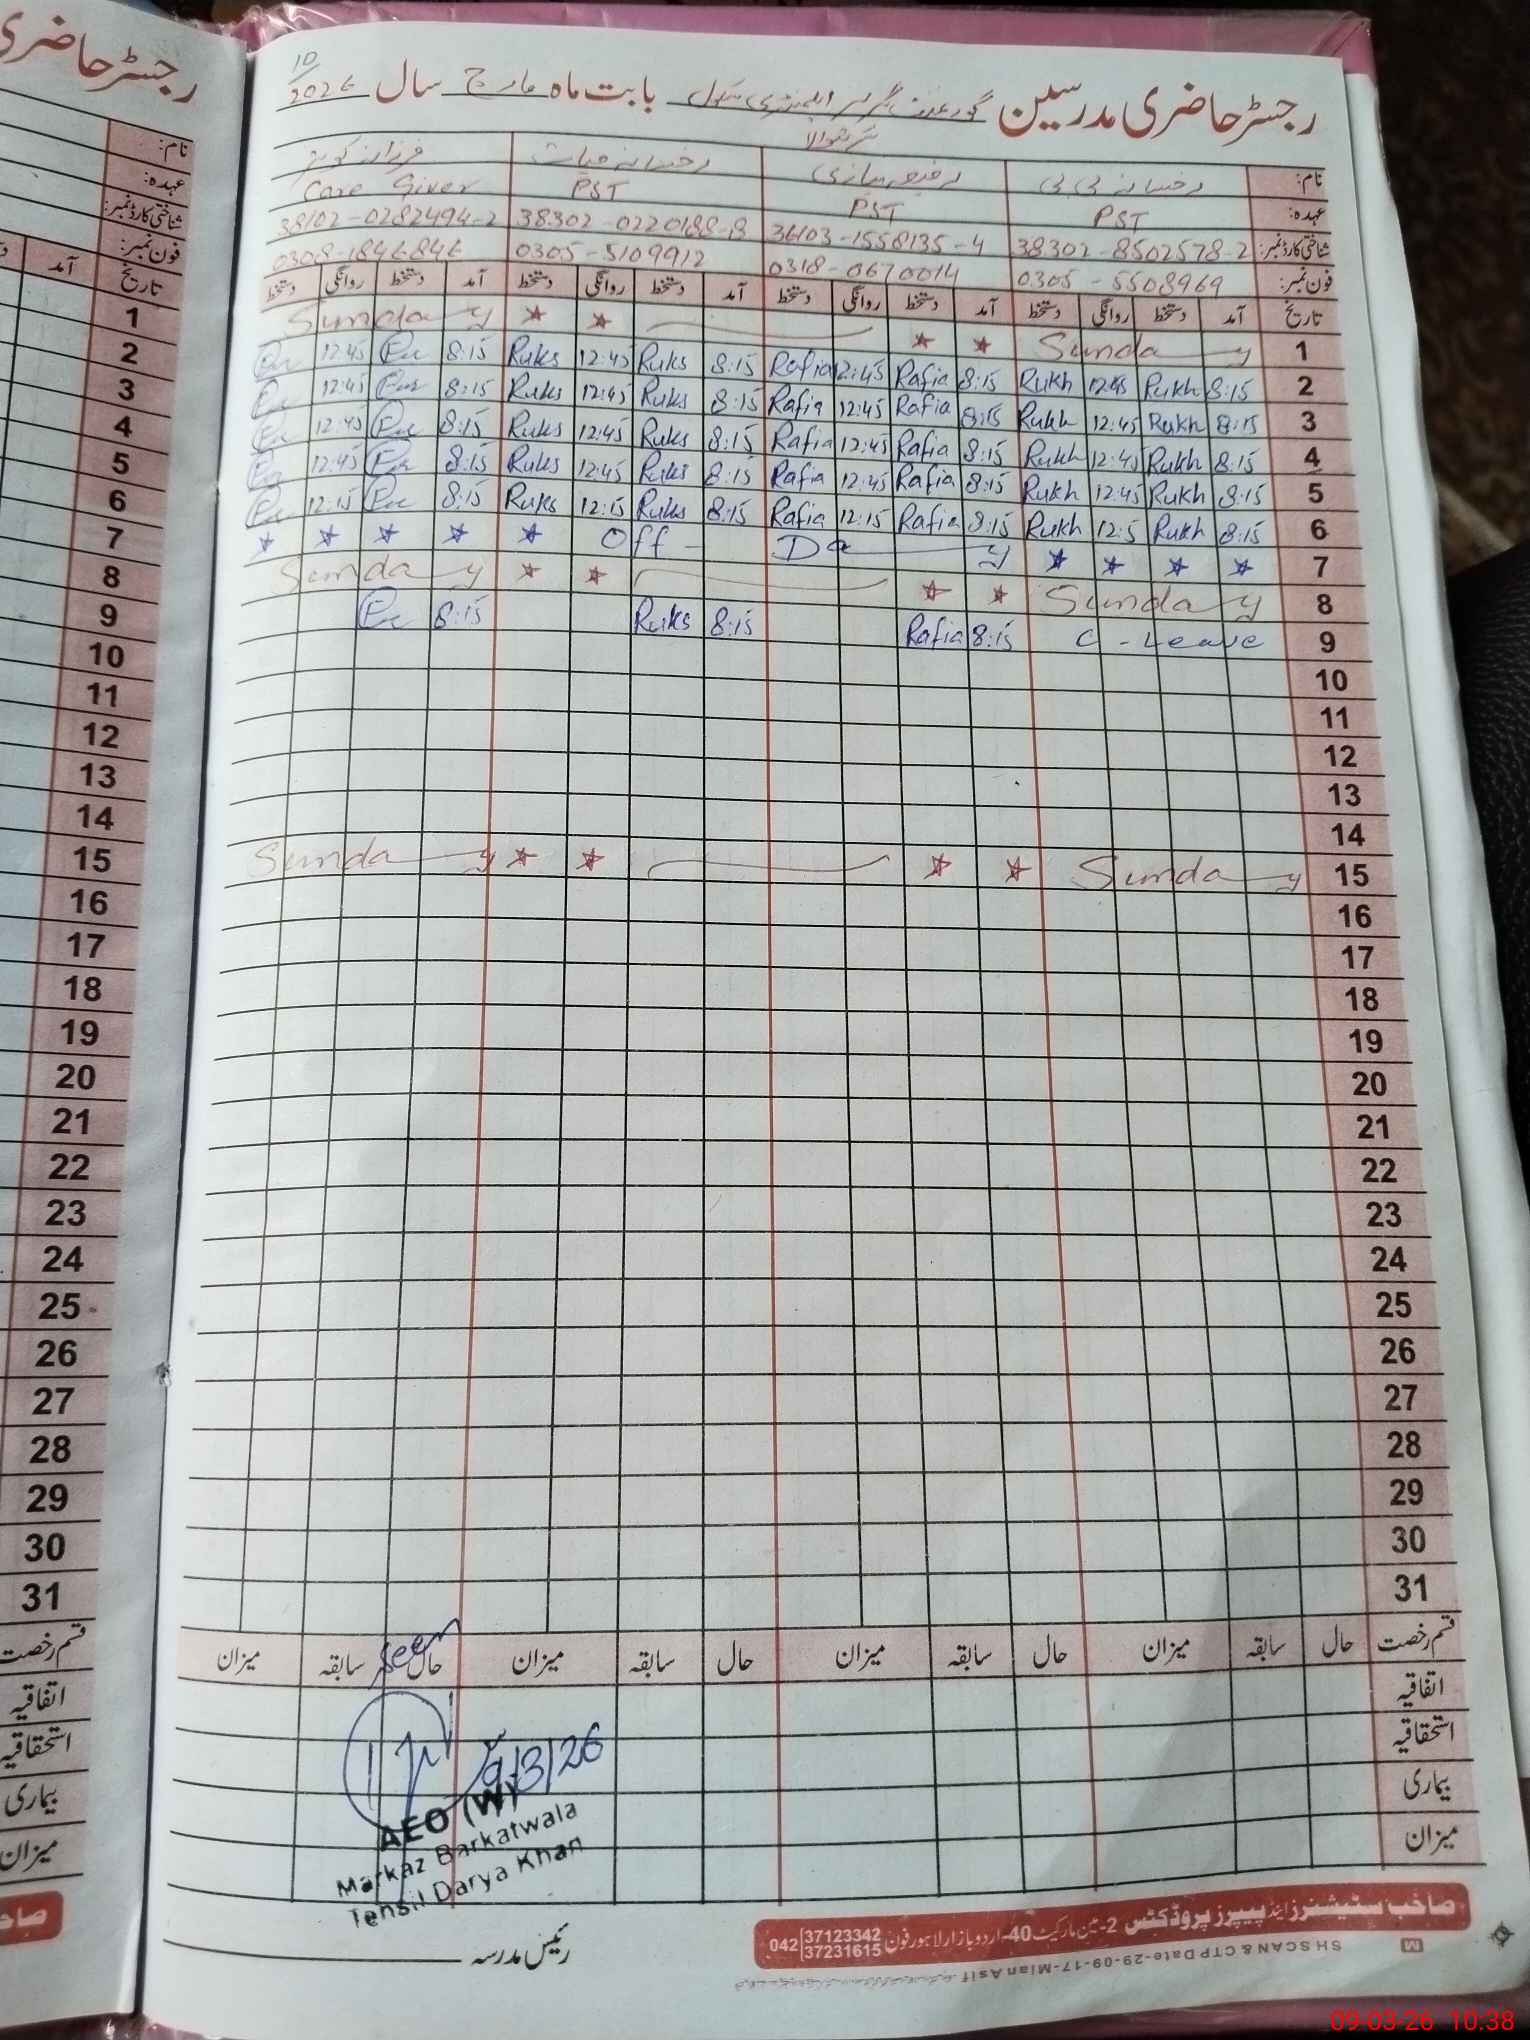 رجسٹر حاضری مدرسین گورنمنٹ گرلز ایلیمنٹری سکول بابت ماہ مارچ سال 2026
10
نام: رخسانہ بی بی رفیعہ نیازی رخسانہ حیات فرزانہ کوثر
عہدہ: PST PST PST Care Giver
شناختی کارڈ نمبر: 38302-8502578-2 36103-1558135-4 38302-0220188-8 38102-0282494-2
فون نمبر: 0305-5508969 0318-0670014 0305-5109912 0308-1846846
تاریخ آمد دستخط روانگی دستخط آمد دستخط روانگی دستخط آمد دستخط روانگی دستخط آمد دستخط روانگی دستخط
1 Sunday Sunday
2 8:15 Rukh 12:45 Rukh 8:15 Rafia 12:45 Rafia 8:15 Ruks 12:45 Ruks 8:15 12:45
3 8:15 Rukh 12:45 Rukh 8:15 Rafia 12:45 Rafia 8:15 Ruks 12:45 Ruks 8:15 12:45
4 8:15 Rukh 12:45 Rukh 8:15 Rafia 12:45 Rafia 8:15 Ruks 12:45 Ruks 8:15 12:45
5 8:15 Rukh 12:45 Rukh 8:15 Rafia 12:45 Rafia 8:15 Ruks 12:45 Ruks 8:15 12:45
6 8:15 Rukh 12:5 Rukh 8:15 Rafia 12:15 Rafia 8:15 Ruks 12:15 Ruks 8:15 12:15
7 Off Day
8 Sunday Sunday
9 C-Leave 8:15 Rafia 8:15 Ruks 8:15
10
11
12
13
14
15 Sunday Sunday
16
17
18
19
20
21
22
23
24
25
26
27
28
29
30
31
قسم رخصت حال سابقہ میزان حال سابقہ میزان حال سابقہ میزان حال سابقہ میزان
اتفاقیہ
استحقاقیہ
بیماری
میزان
Seen
9/3/26
AEO (W)
Markaz Barkatwala
Tehsil Darya Khan
رئیس مدرسہ
صاحب سٹیشنرز اینڈ پیپرز پروڈکٹس 2-مین مارکیٹ 40-اردو بازار لاہور فون 042 37123342 37231615
SH SCAN & CTP Date-29-09-17-Mian Asif
M
رجسٹر حاضری
نام:
عہدہ:
شناختی کارڈ نمبر:
فون نمبر:
تاریخ آمد
1
2
3
4
5
6
7
8
9
10
11
12
13
14
15
16
17
18
19
20
21
22
23
24
25
26
27
28
29
30
31
قسم رخصت
اتفاقیہ
استحقاقیہ
بیماری
میزان
09-03-26 10:38